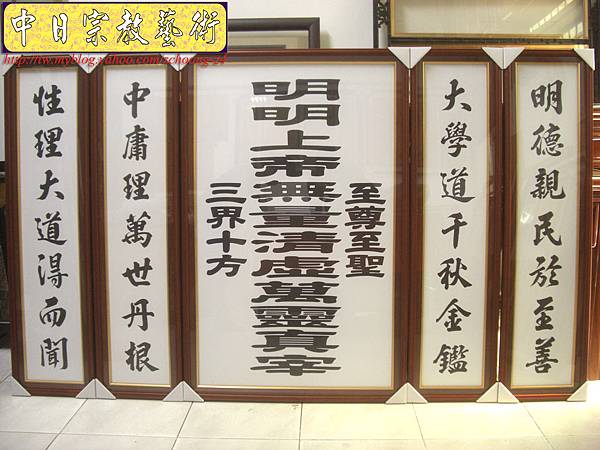 中日宗教藝術
http://tw.myblog.yahoo.com/zchoung-24
明德親民於至善
大學道千秋金鑑
至尊至聖
明明上帝無量清虛萬靈真宰
三界十方
中庸理萬世丹根
性理大道得而聞